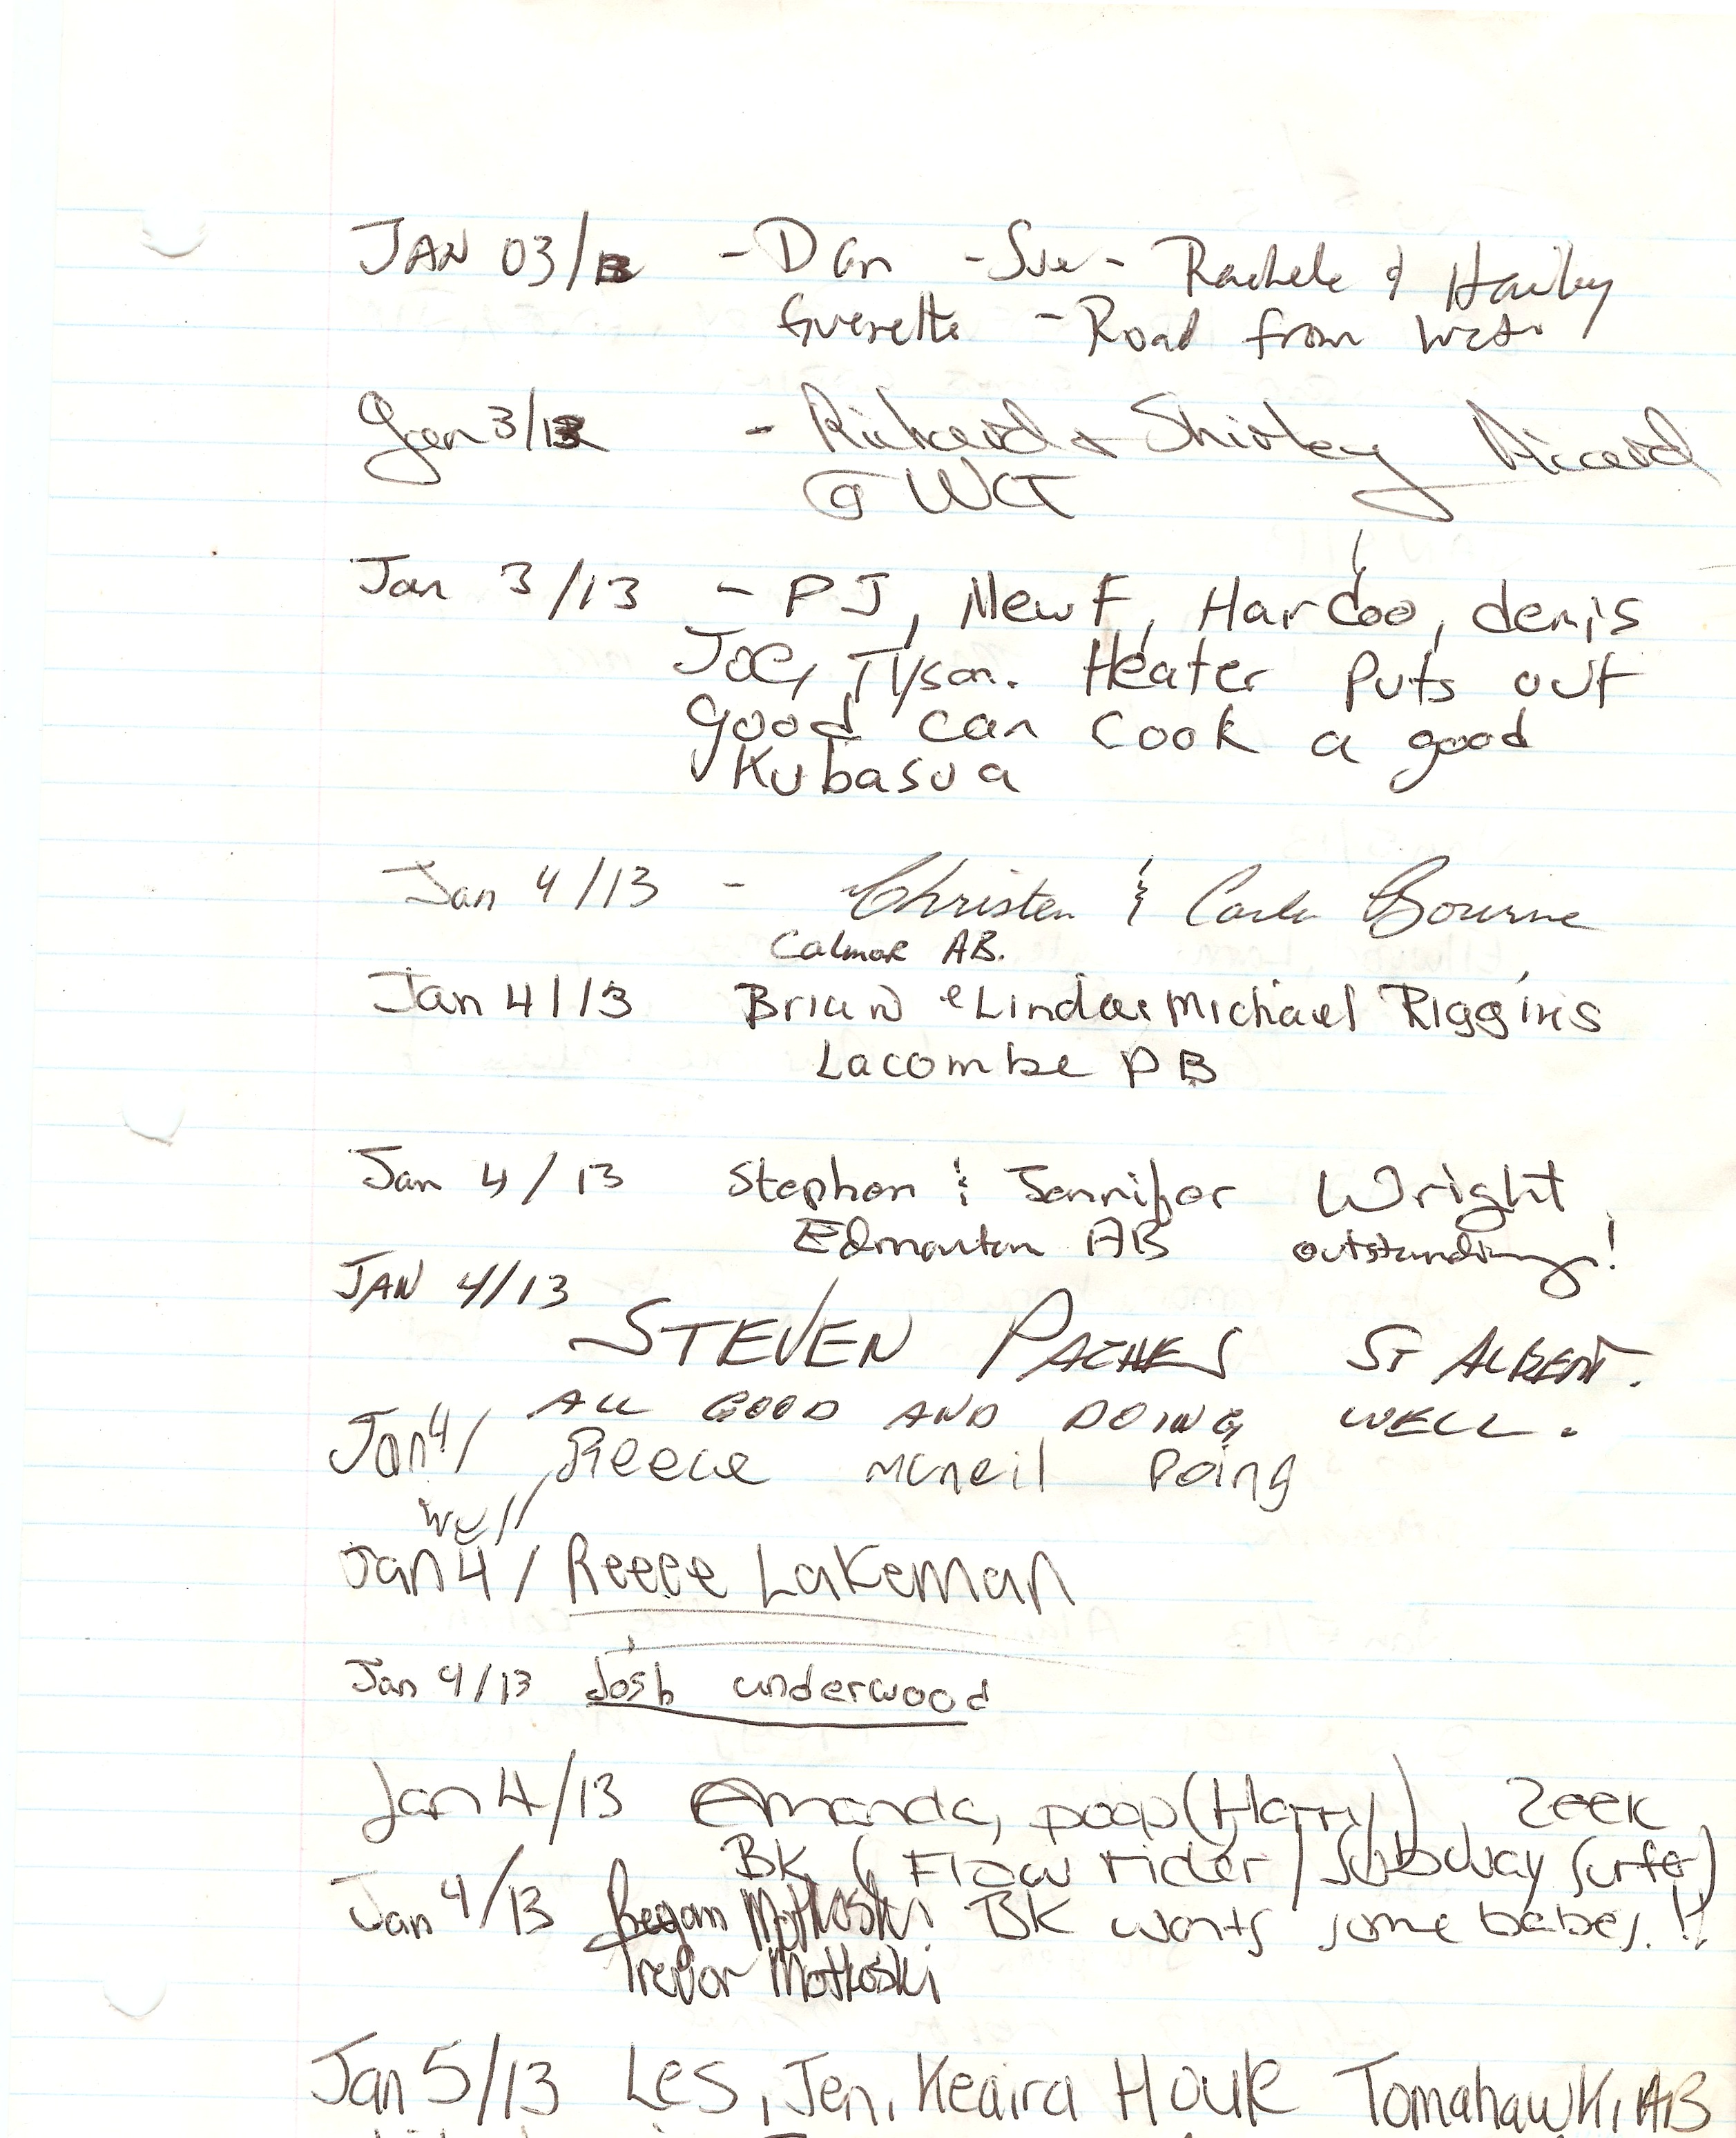 JAN 03/13 - Dan - Sue - Rachele & Hailey
Guerette - Road from
Jan 3/13 - Richard + Shirley Picard
@ WCT
Jan 3/13 - PJ, New F, Hardoo, denis
Joe, Tyson. Heater Puts out
good can cook a good
Kubasua
Jan 4/13 - Christen & Carla Bourne
Calmar AB.
Jan 4/13 Brian & Linda & Michael Riggins
Lacombe AB
Jan 4/13 Stephen & Jennifer Wright
Edmonton AB outstanding!
JAN 4/13
STEVEN ST ALBERT.
ALL GOOD AND DOING WELL.
Jan 4/ Reece mcneil Doing
well
Jan 4/ Reece Lakeman
Jan 4/13 Josh underwood
Jan 4/13 Amanda, poop (Harry), Zeek
BK (Flow rider / Subway Surfer)
Jan 4/13 Regan Motkoski BK wants some babes.!!
Trevor Motkoski
Jan 5/13 Les, Jen, Keaira Houk Tomahawk, AB